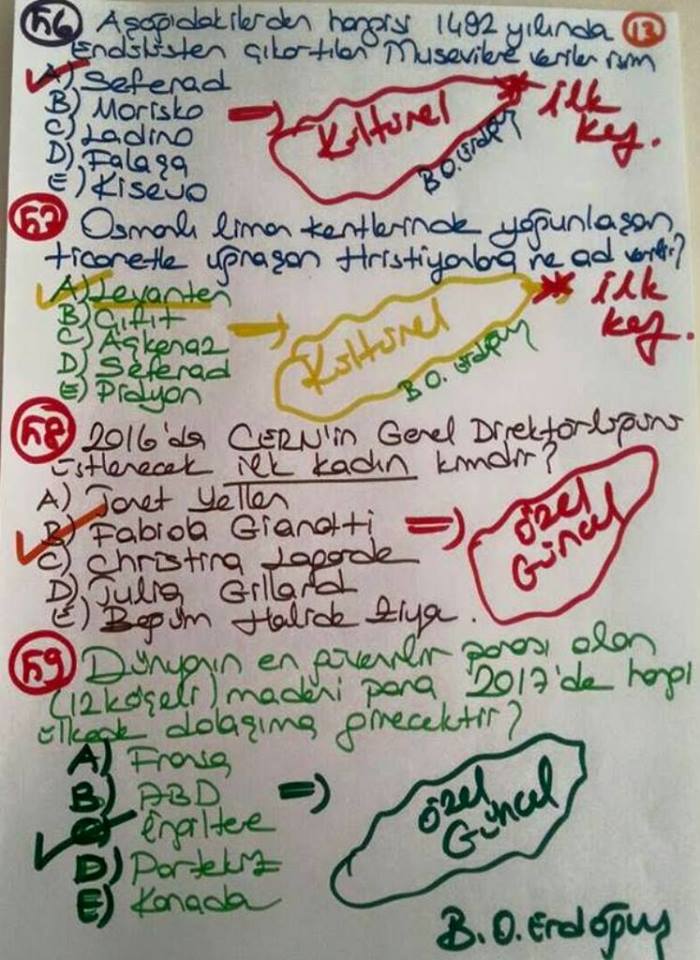 56 Aşağıdakilerden hangisi 1492 yılında 13
Endülüsten çıkartılan Musevilere verilen isim
A) Seferad
B) Morisko
C) Ladino
D) Falaşa
E) Kisevo
=> Kültürel
B.O. Erdoğuş
* ilk
kez.
57 Osmanlı liman kentlerinde yoğunlaşan,
ticaretle uğraşan Hristiyanlara ne ad verilir?
A) Levanten
B) Çıfıt
C) Aşkenaz
D) Seferad
E) Pidyon
=> Kültürel
B.O. Erdoğuş
* ilk
kez.
58 2016'da CERN'in Genel Direktörlüğünü
üstlenecek ilk kadın kimdir?
A) Janet Yellen
B) Fabiola Gianotti
C) Christina Lagarde
D) Julia Gillard
E) Begüm Halide Ziya.
=> özel
Güncel
59 Dünyanın en güvenilir parası olan
(12 köşeli) madeni para 2017'de hangi
ülkede dolaşıma girecektir?
A) Fransa
B) ABD
C) İngiltere
D) Portekiz
E) Kanada
=> özel
Güncel
B.O. Erdoğuş